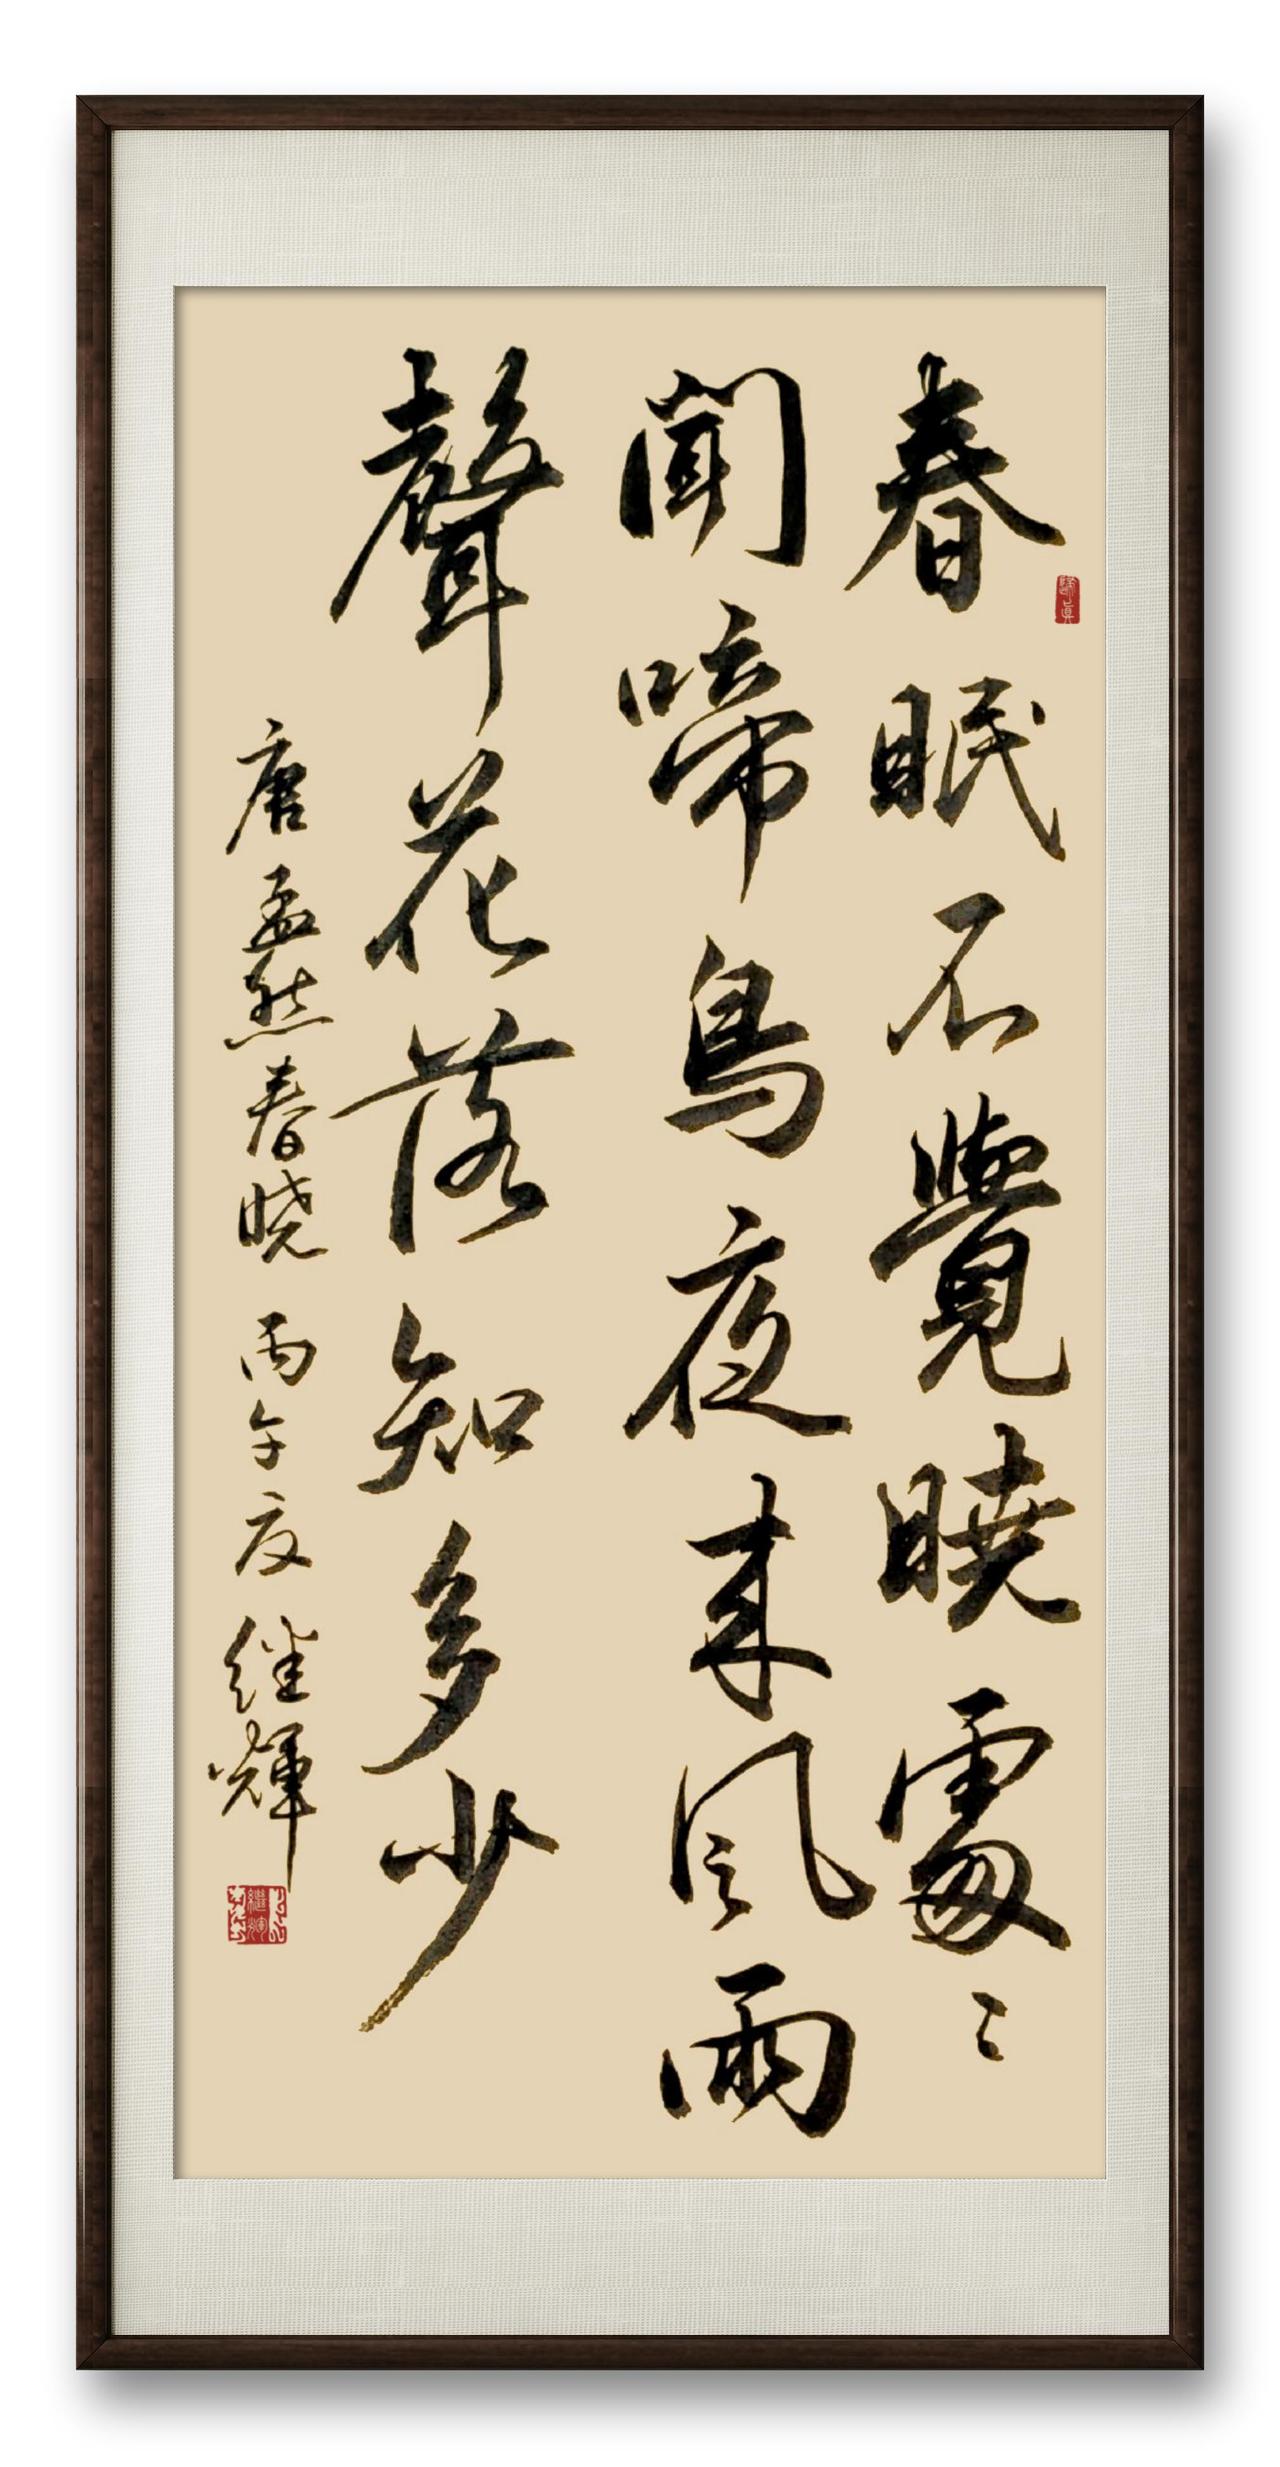 春眠不覺曉處〻
聞啼鳥夜来风雨
聲花落知多少
唐孟然春晓 丙午夏 继輝